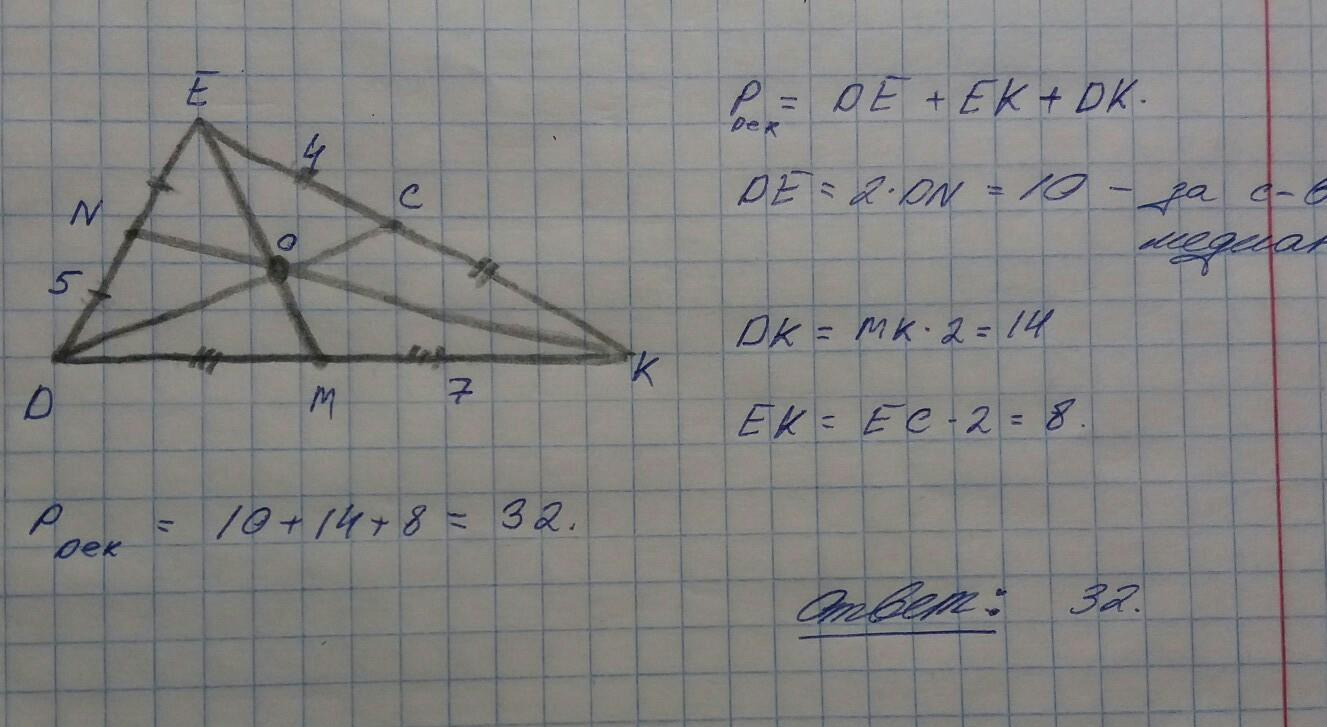 E
4
C
N
O
5
D
M
7
K
P DEK = DE + EK + DK.
DE = 2·DN = 10 – за с-в
медиан
DK = MK·2 = 14
EK = EC·2 = 8.
P DEK = 10+14+8 = 32.
Ответ: 32.